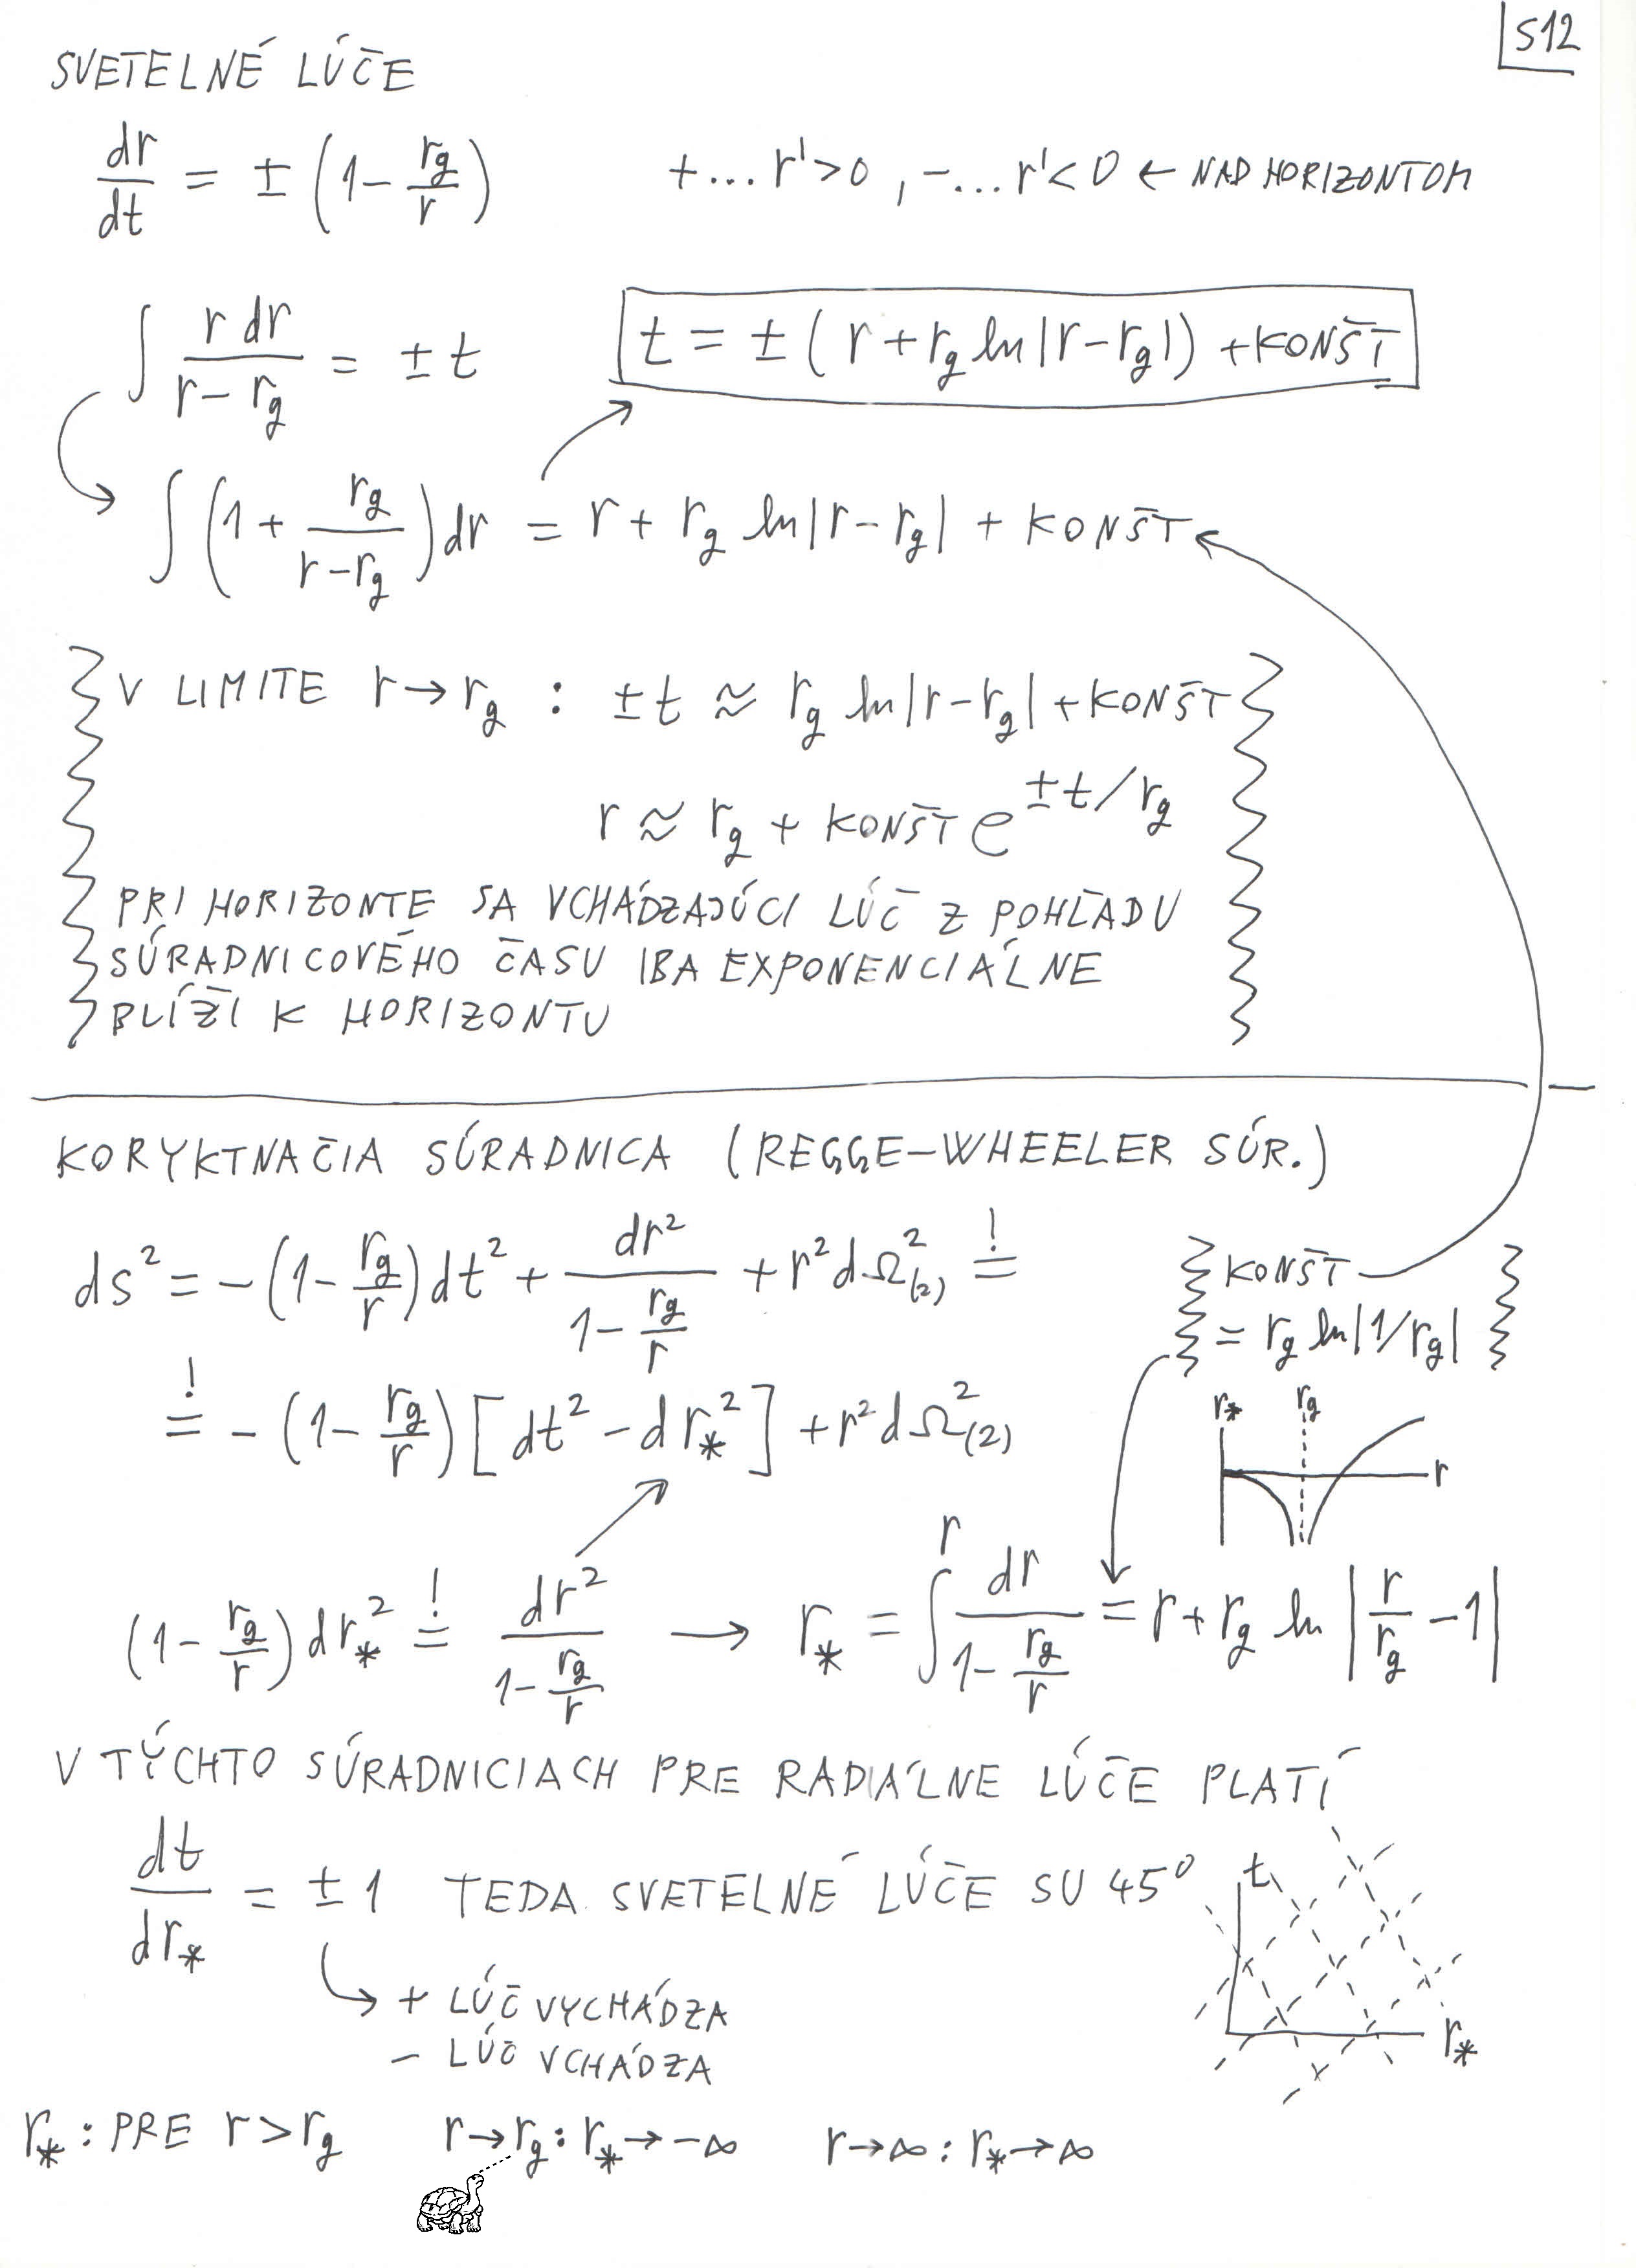 S12
SVETELNÉ LÚČE
dr/dt = ± (1 - rg/r)   +... r'>0, -... r'<0 ← NAD HORIZONTOM
∫ r dr/(r - rg) = ± t   t = ± (r + rg ln|r - rg|) + KONŠT
∫ (1 + rg/(r - rg)) dr = r + rg ln|r - rg| + KONŠT
V LIMITE r → rg : ± t ≈ rg ln|r - rg| + KONŠT
r ≈ rg + KONŠT e^(± t/rg)
PRI HORIZONTE SA VCHÁDZAJÚCI LÚČ Z POHĽADU
SÚRADNICOVÉHO ČASU IBA EXPONENCIÁLNE
BLÍŽI K HORIZONTU
KORYTNAČIA SÚRADNICA (REGGE-WHEELER SÚR.)
ds² = - (1 - rg/r) dt² + dr²/(1 - rg/r) + r² dΩ²(2) =!
KONŠT
= rg ln|1/rg|
=! - (1 - rg/r) [dt² - dr*²] + r² dΩ²(2)
r* rg r
(1 - rg/r) dr*² =! dr²/(1 - rg/r) → r* = ∫^r dr/(1 - rg/r) = r + rg ln |r/rg - 1|
V TÝCHTO SÚRADNICIACH PRE RADIÁLNE LÚČE PLATÍ
dt/dr* = ± 1 TEDA SVETELNÉ LÚČE SU 45°
t
+ LÚČ VYCHÁDZA
- LÚČ VCHÁDZA
r*
r* : PRE r > rg   r → rg : r* → -∞   r → ∞ : r* → ∞